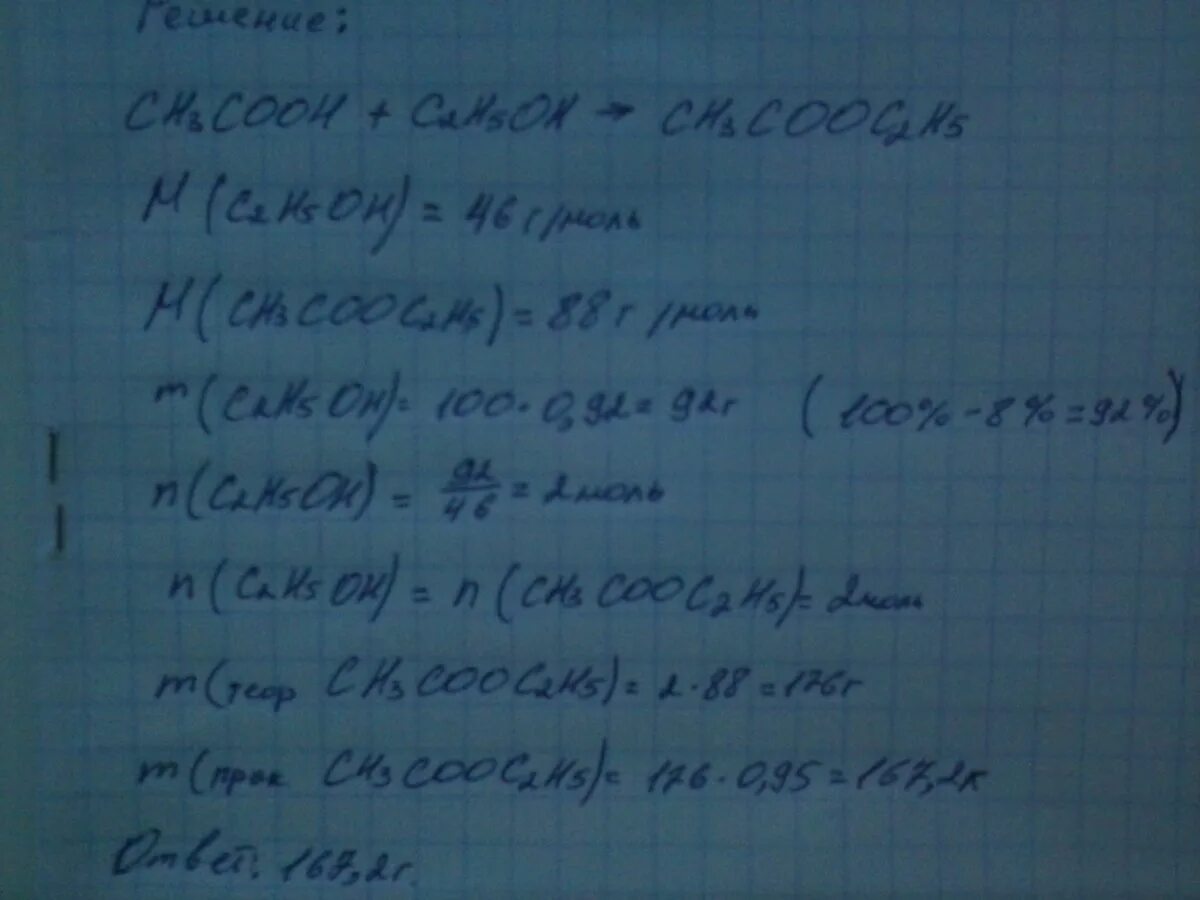 Решение:
CH₃COOH + C₂H₅OH → CH₃COOC₂H₅
M (C₂H₅OH) = 46 г/моль
M (CH₃COOC₂H₅) = 88 г/моль
m (C₂H₅OH) = 100 · 0,92 = 92 г (100% - 8% = 92%)
n (C₂H₅OH) = 92/46 = 2 моль
n (C₂H₅OH) = n (CH₃COOC₂H₅) = 2 моль
m (теор CH₃COOC₂H₅) = 2 · 88 = 176 г
m (прак CH₃COOC₂H₅) = 176 · 0,95 = 167,2 г
Ответ: 167,2 г.